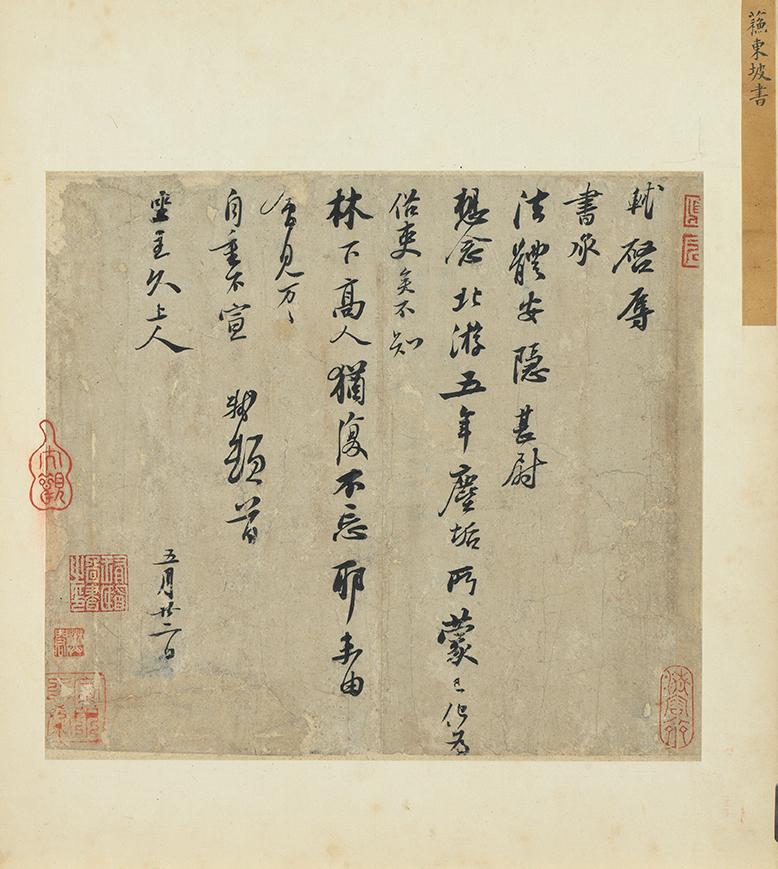 蘓東坡書
軾啓辱
書承
法體安隱甚尉
想念北游五年塵垢所蒙已化為
俗吏矣不知
林下高人猶復不忘耶未由
會見万〻
自重不宣 軾頓首
坐主久上人
五月廿二日
大觀